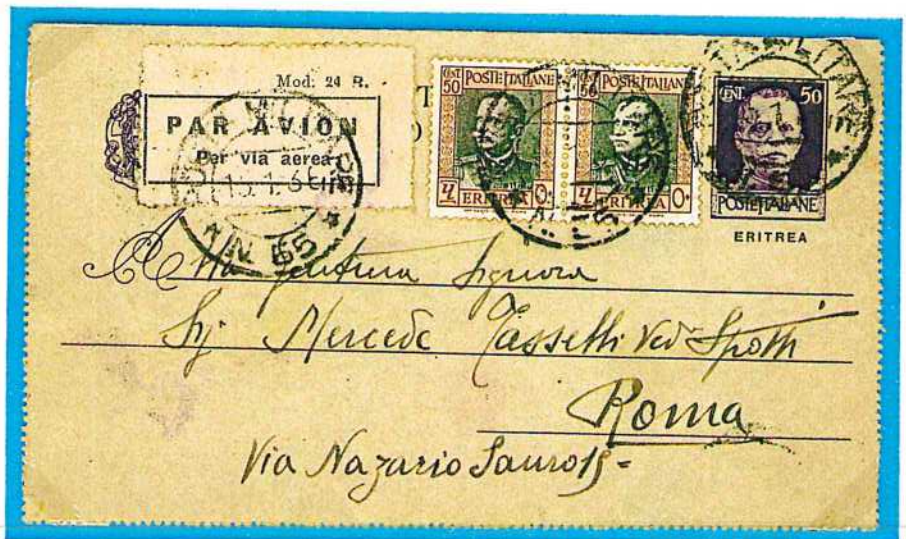 Mod. 24 R.
PAR AVION
Per via aerea
CENT 50 POSTE ITALIANE
ERITREA
CENT 50 POSTE ITALIANE
ERITREA
CENT. 50
POSTE ITALIANE
ERITREA
N. 65
Alla gentma Signora
Sig Mercede Tasselli Ved. Spotti
Roma
Via Nazario Sauro 15=